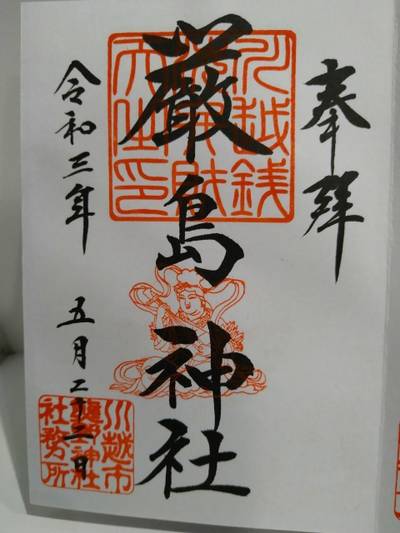 奉拜
川越銭
洗弁財
天之印
厳島神社
令和三年
五月二十二日
川越市
熊野神社
社務所